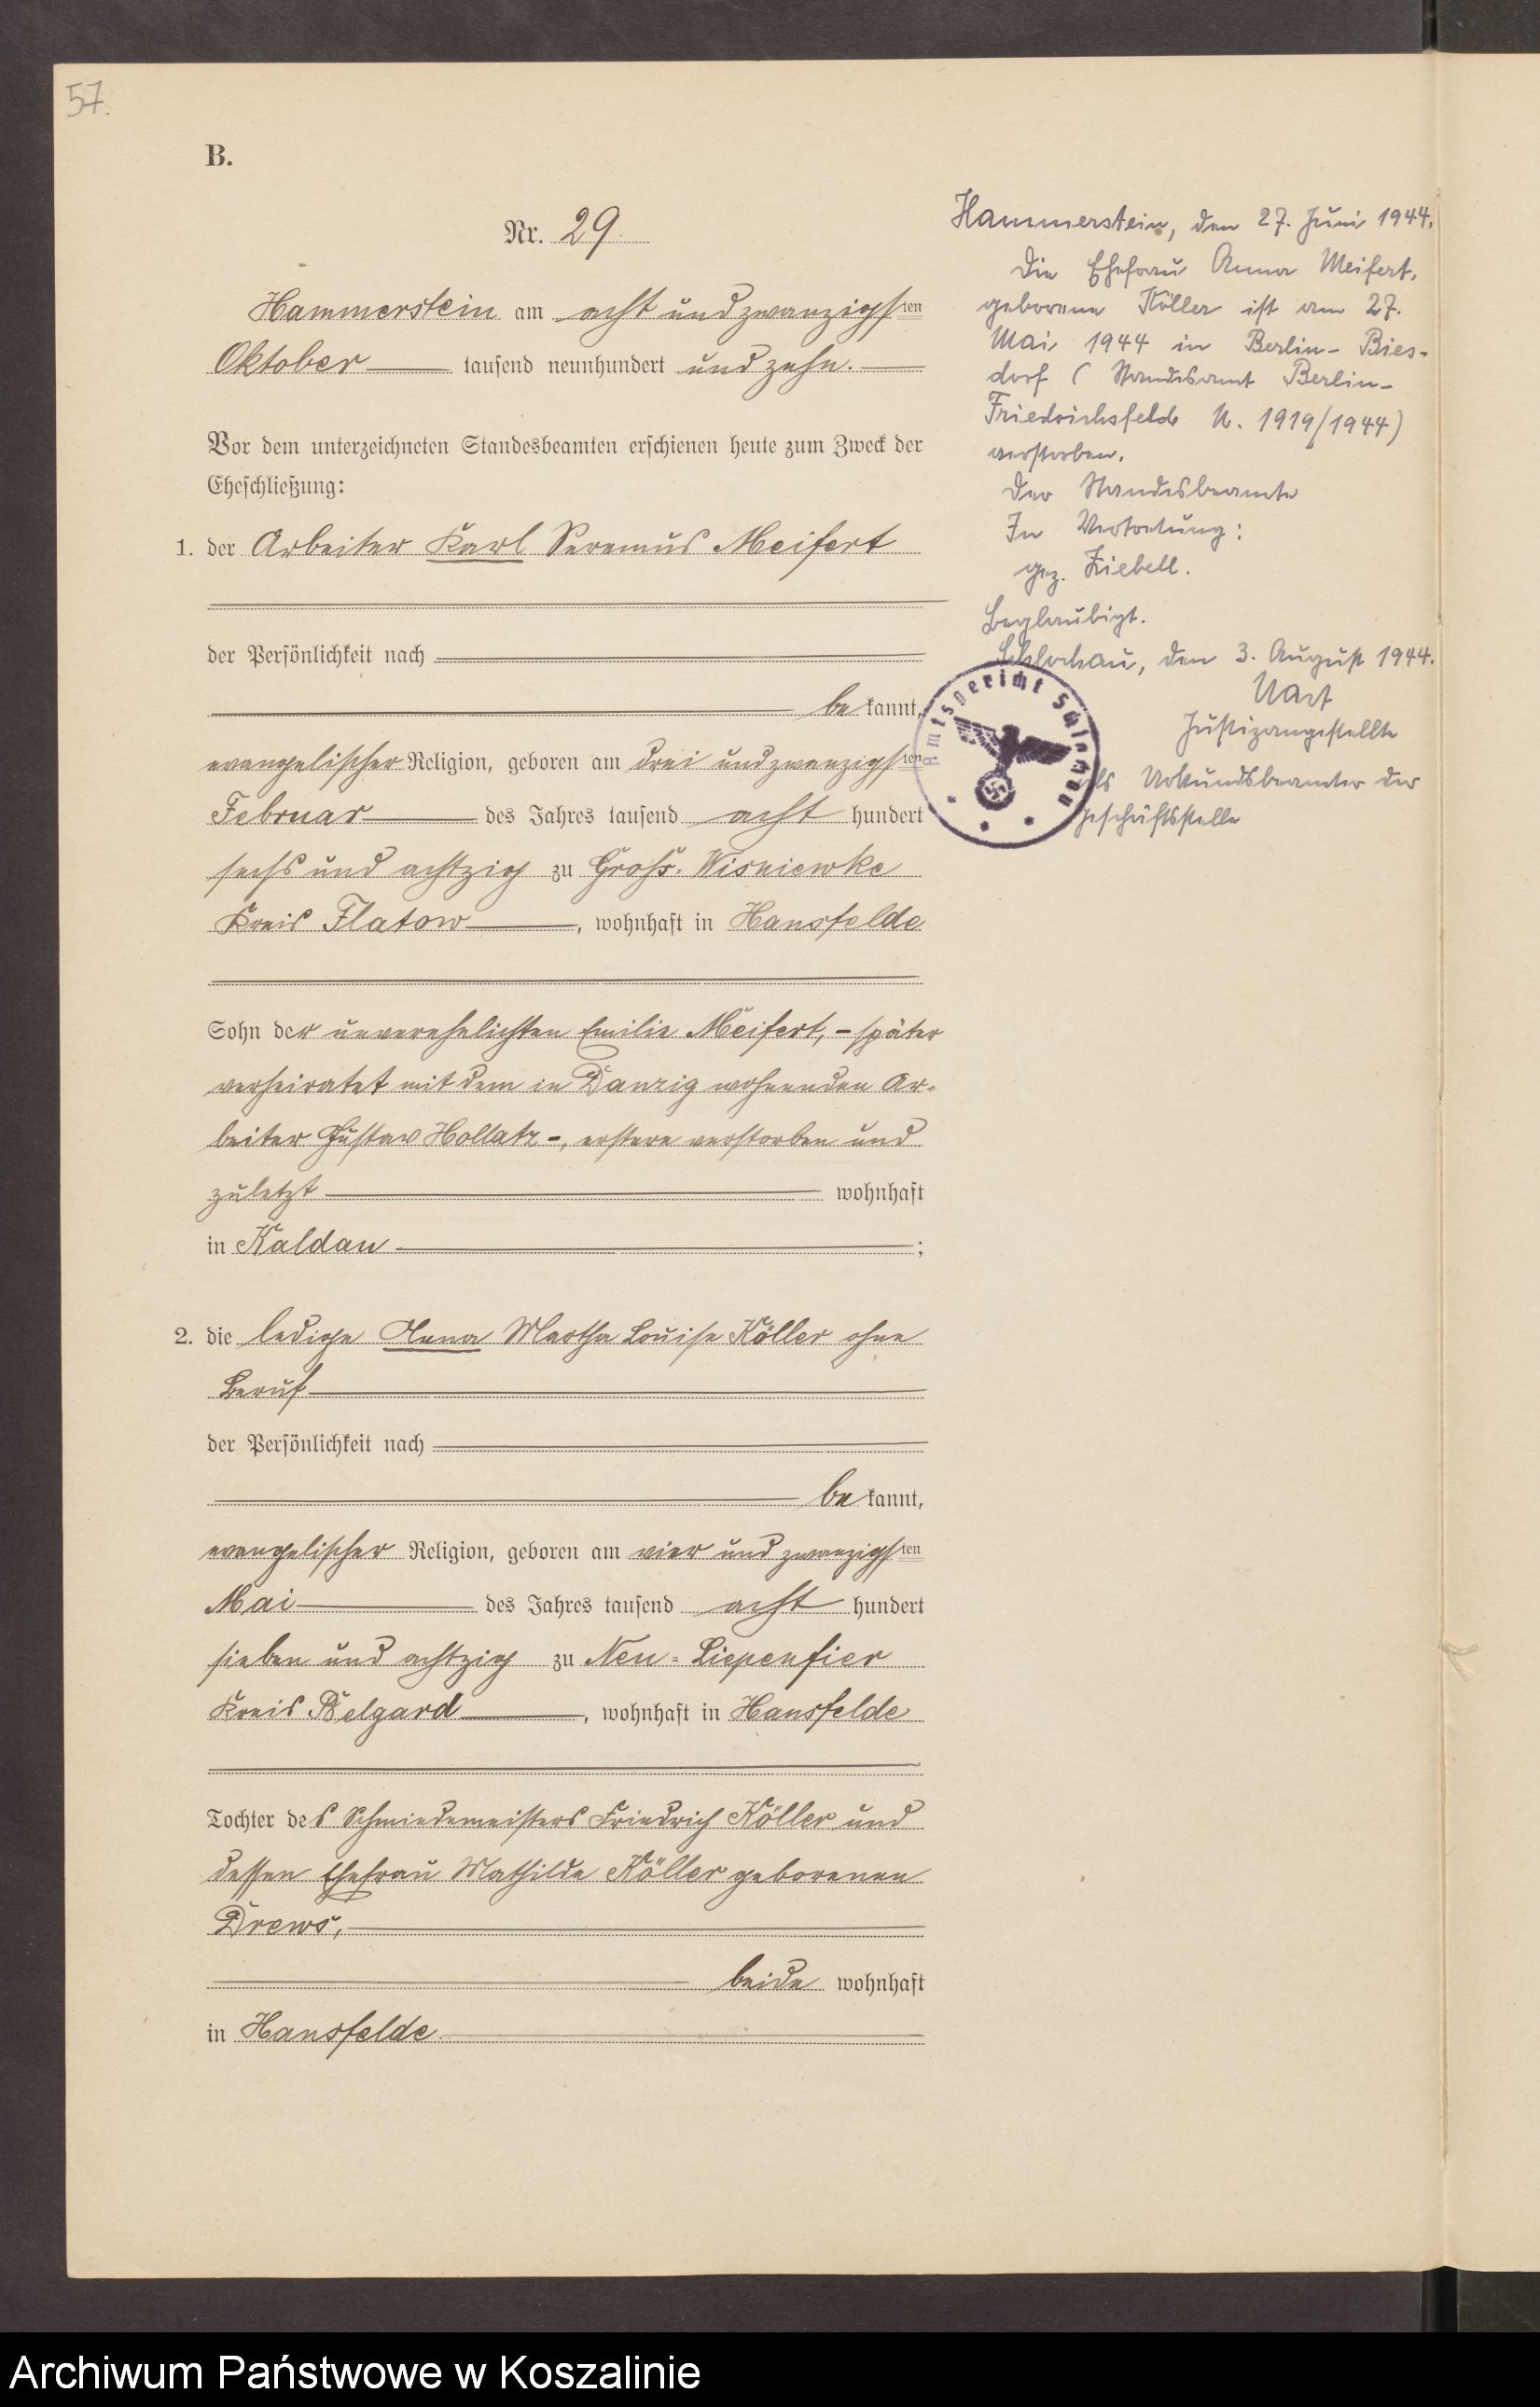 57.
B.
Nr. 29.
Hammerstein am acht und zwanzigsten
Oktober tausend neunhundert und zehn.
Vor dem unterzeichneten Standesbeamten erschienen heute zum Zweck der
Eheschließung:
1. der Arbeiter Karl Seremus Meifert
der Persönlichkeit nach
be kannt,
evangelischer Religion, geboren am drei und zwanzigsten
Februar des Jahres tausend acht hundert
sechs und achtzig zu Groß-Wisniewke
Kreis Flatow, wohnhaft in Hansfelde
Sohn der unverehelichten Emilie Meifert, - später
verheiratet mit dem in Danzig wohnenden Ar-
beiter Gustav Hollatz -, erstere verstorben und
zuletzt wohnhaft
in Kaldau;
2. die ledige Anna Martha Louise Köller ohne
Beruf
der Persönlichkeit nach
be kannt,
evangelischer Religion, geboren am vier und zwanzigsten
Mai des Jahres tausend acht hundert
sieben und achtzig zu Neu-Liepenfier
Kreis Belgard, wohnhaft in Hansfelde
Tochter des Schmiedemeisters Friedrich Köller und
dessen Ehefrau Mathilde Köller geborenen
Drews,
beide wohnhaft
in Hansfelde.
Hammerstein, den 27. Juni 1944.
Die Ehefrau Anna Meifert,
geborene Köller ist am 27.
Mai 1944 in Berlin-Bies-
dorf (Standesamt Berlin-
Friedrichsfelde N. 1919/1944)
verstorben.
Der Standesbeamte
In Vertretung:
gez. Ziebell.
Beglaubigt.
Schlochau, den 3. August 1944.
Justizangestellte
als Urkundsbeamter der
Geschäftsstelle
Amtsgericht Schlochau
Archiwum Państwowe w Koszalinie